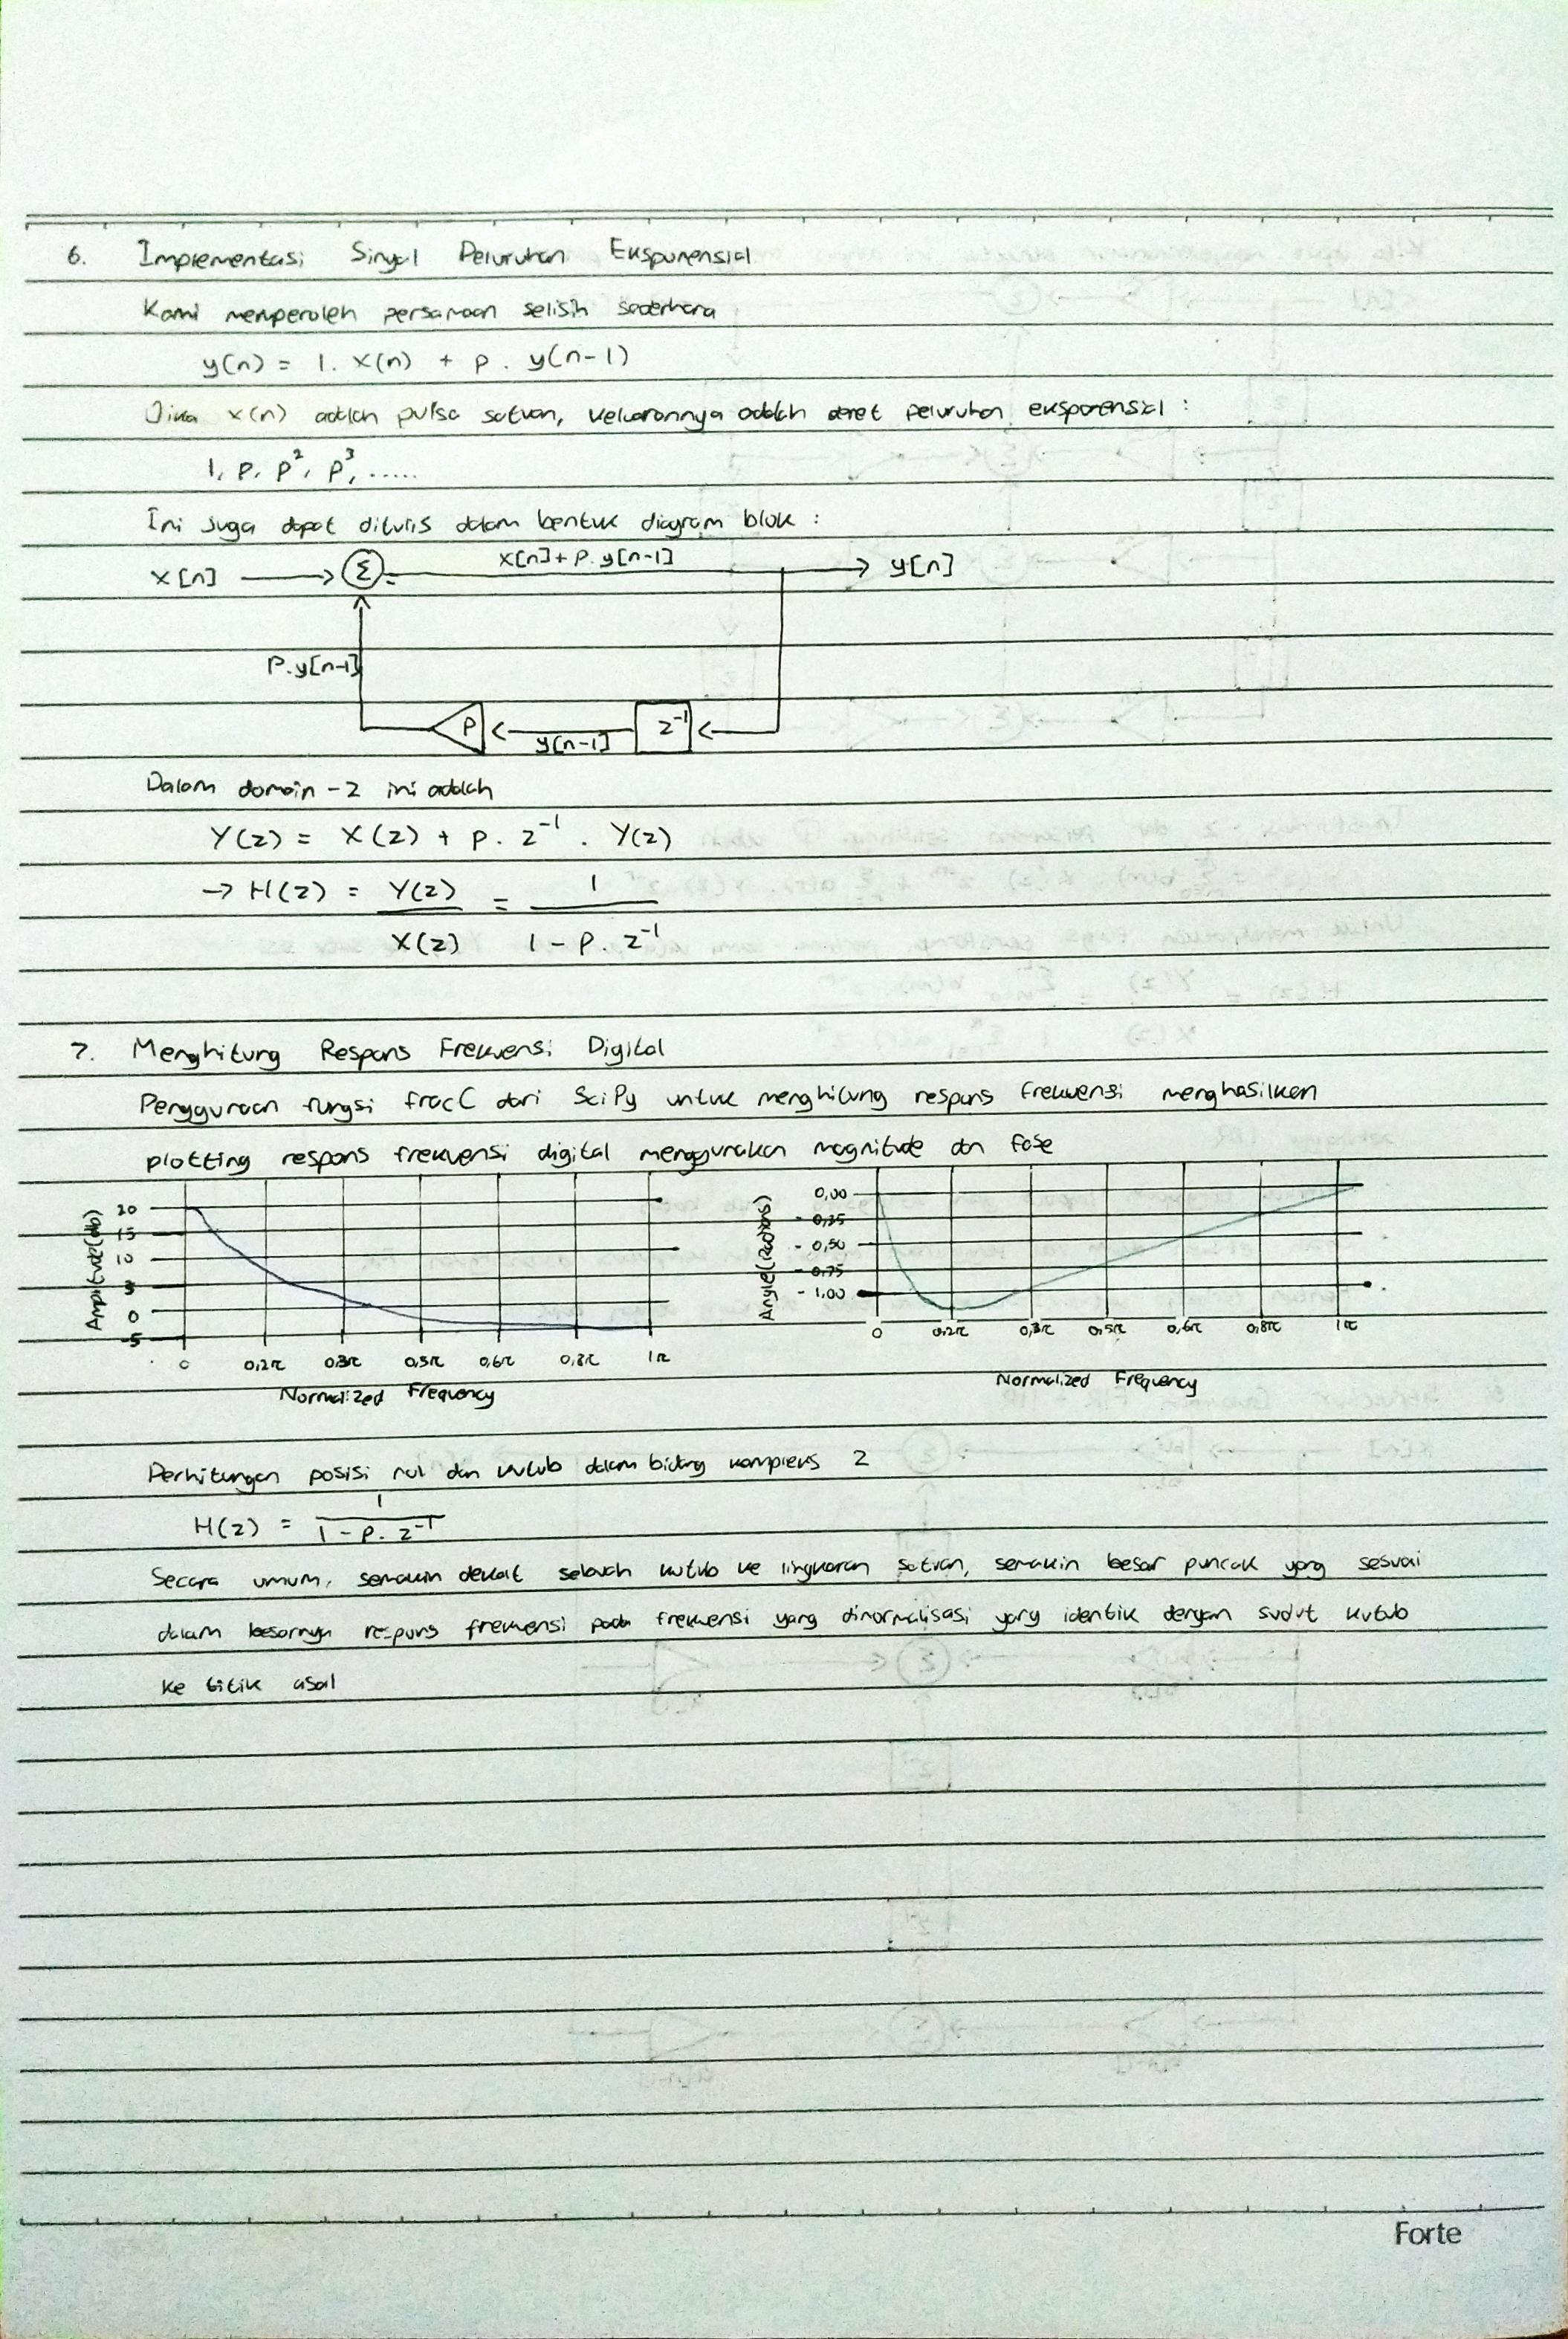 6. Implementasi Sinyal Peluruhan Eksponensial
Kami memperoleh persamaan selisih sederhana
y(n) = 1. x(n) + p . y(n-1)
Jika x(n) adalah pulsa satuan, keluarannya adalah deret peluruhan eksponensial :
1, p, p², p³, .....
Ini juga dapat ditulis dalam bentuk diagram blok :
x[n] Σ x[n]+p.y[n-1] y[n]
P.y[n-1]
P y[n-1] z⁻¹
Dalam domain-z ini adalah
Y(z) = X(z) + p . z⁻¹ . Y(z)
→ H(z) = Y(z) = 1
X(z) 1 - p . z⁻¹
7. Menghitung Respons Frekuensi Digital
Penggunaan fungsi dari SciPy untuk menghitung respons frekuensi menghasilkan
plotting respons frekuensi digital menggunakan magnitude dan fase
Amplitude (db)
20
15
10
5
0
-5
0 0,2π 0,3π 0,5π 0,6π 0,8π 1π
Normalized Frequency
Angle (Radians)
0,00
- 0,25
- 0,50
- 0,75
- 1,00
0 0,2π 0,3π 0,5π 0,6π 0,8π 1π
Normalized Frequency
Perhitungan posisi nol dan kutub dalam bidang kompleks z
H(z) = 1
1 - p . z⁻¹
Secara umum, semakin dekat sebuah kutub ke lingkaran satuan, semakin besar puncak yang sesuai
dalam besarnya respons frekuensi pada frekuensi yang dinormalisasi yang identik dengan sudut kutub
ke titik asal
Forte